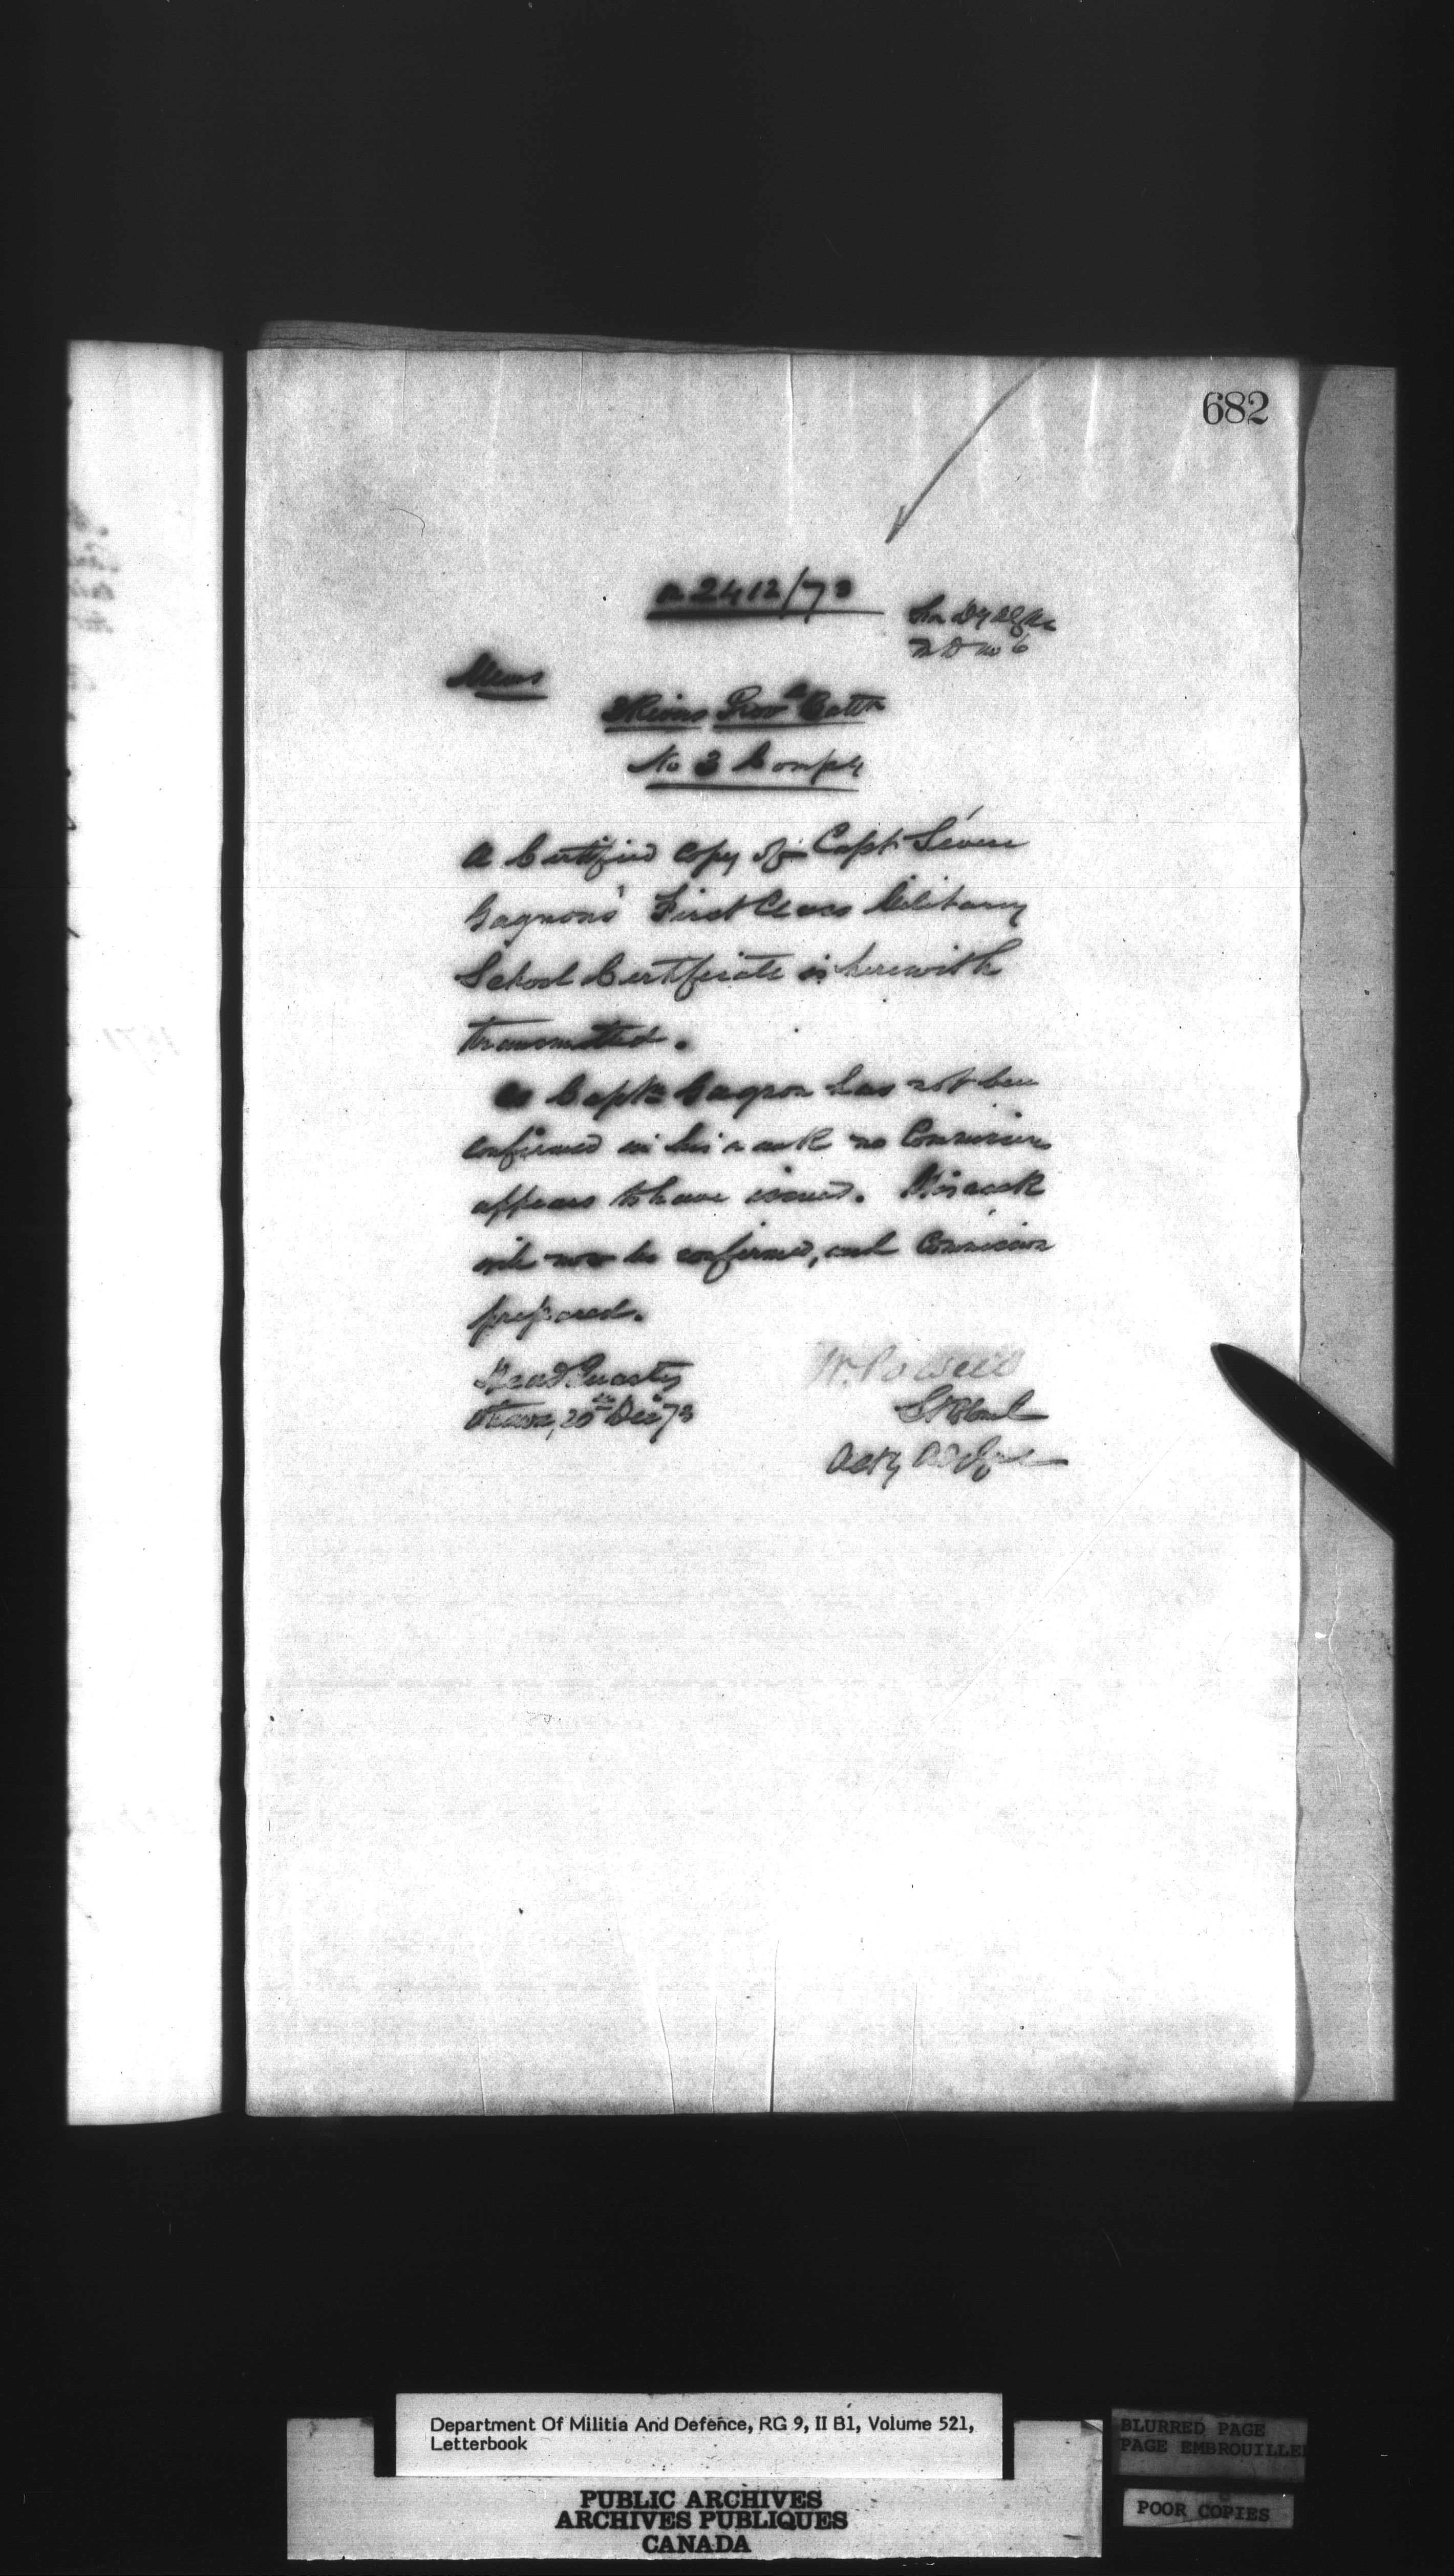 682
A 2412/73
The Dy Adj Gl
M D No 6
Memo
3 Rivers Provl Battn
No 3 Compy
A Certified copy of Capt Sévère
Gagnon's First Class Military
School Certificate is herewith
transmitted.
As Captn Gagnon has not been
confirmed in his rank no Commission
appears to have issued. His rank
will now be confirmed, and Commission
prepared.
Head Quarters
Ottawa, 20th Dec 73
W. Powell
Lt Col
Actg
Department Of Militia And Defence, RG 9, II B1, Volume 521,
Letterbook
BLURRED PAGE
PAGE EMBROUILLE
PUBLIC ARCHIVES
ARCHIVES PUBLIQUES
CANADA
POOR COPIES